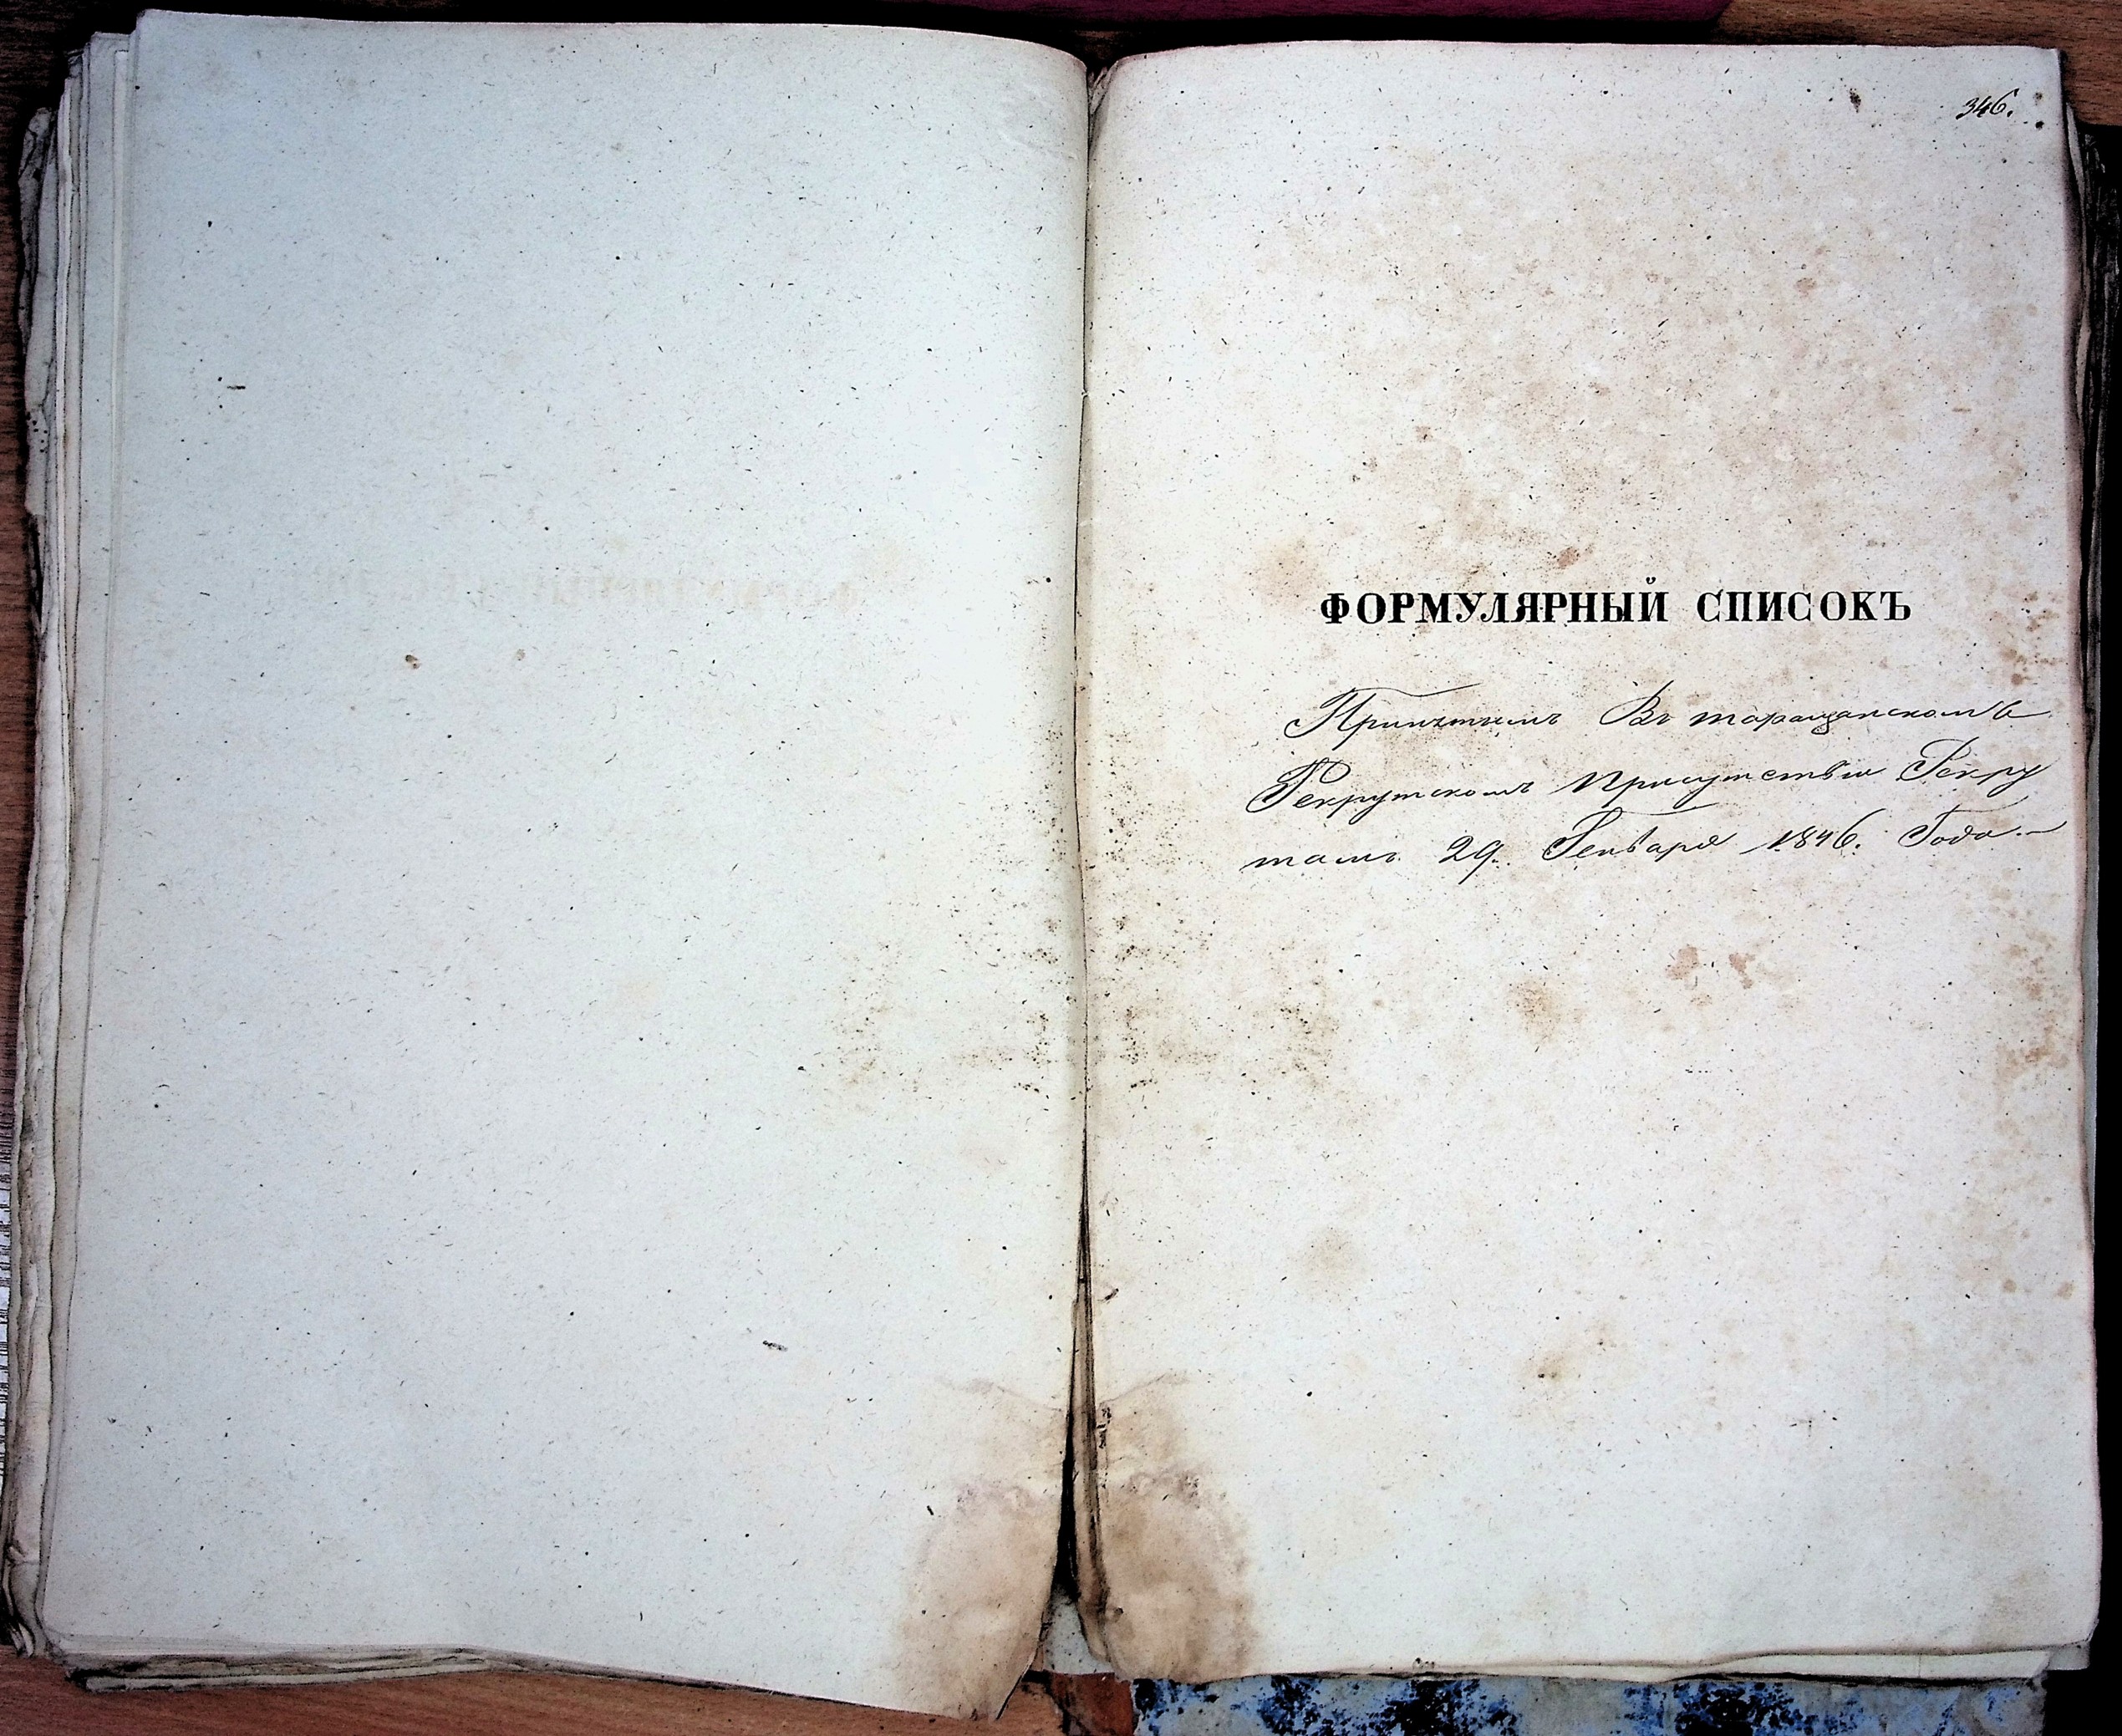 346.
ФОРМУЛЯРНЫЙ СПИСОКЪ
Принятымъ Въ таращанскомъ
Рекрутскомъ Присутствіи Рекру
тамъ 29. Генваря 1846. Года.—